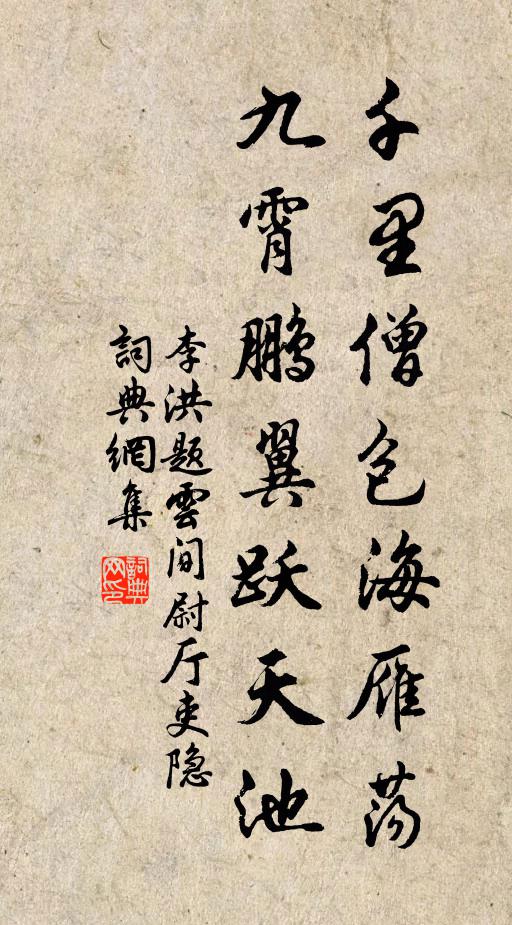 千里僧包海雁荡
九霄鹏翼跃天池
李洪题雲间尉厅吏隐
詞典網集
詞典
网印